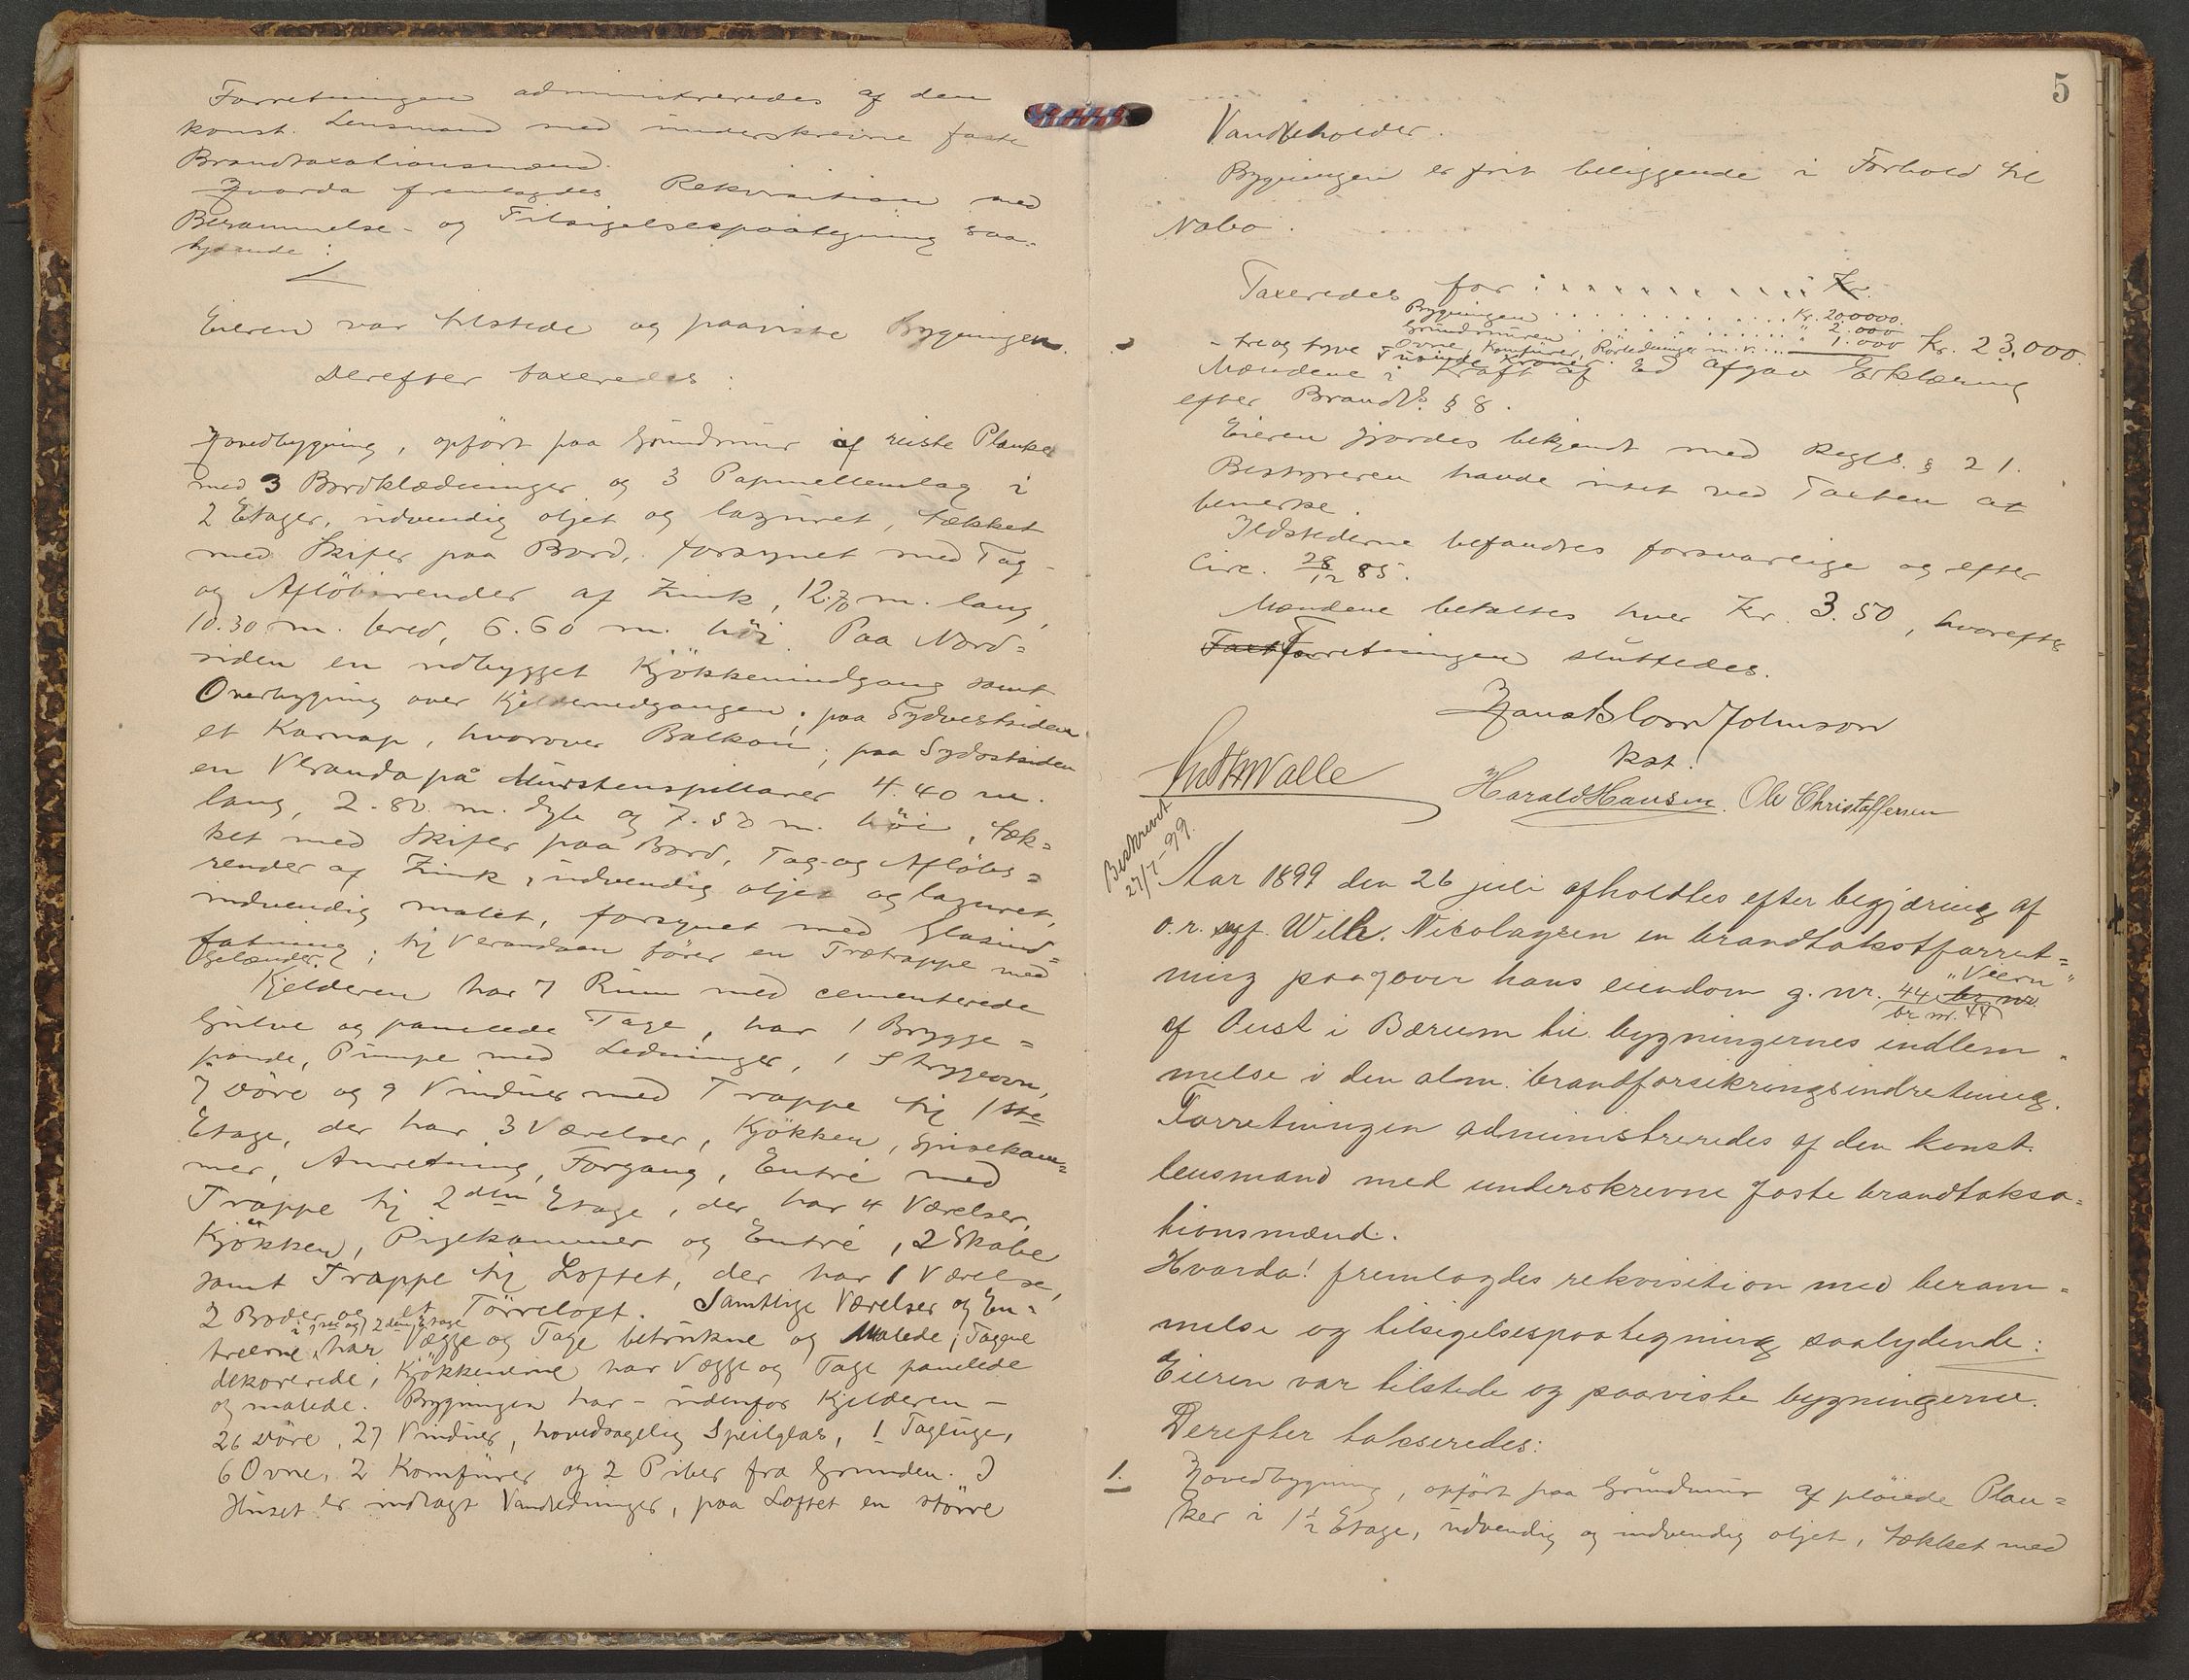 Forretningen administreredes af den
konst. Lensmand med underskrevne faste
Brandtaxationsmænd.
Hvorda fremlagdes Rekvisition med
Berammelse- og Tilsigelsespaategning saa-
lydende:
Eieren var tilstede og paaviste Bygningen.
Derefter taxeredes:
Hovedbygning, opført paa Grundmur af reiste Planker
med 3 Bordklædninger og 3 Papmellemlag i
2 Etager, udvendig oljet og lazuret, tækket
med Skifer paa Bord, forsynet med Tag-
og Afløbsrender af Zink, 12.70 m. lang,
10.30 m. bred, 6.60 m. høi. Paa Nord=
siden en udbygget Kjøkkenindgang samt
Overbygning over Kjeldernedgangen; paa Sydvestsiden
et Karnap, hvorover Balkon; paa Sydostsiden
en Veranda på Murstenspillarer 4.40 m.
lang, 2.80 m. dyb og 7.50 m. høi, tæk=
ket med Skifer paa Bord, Tag- og Afløbs=
render af Zink, udvendig oljet og lazuret,
indvendig malet, forsynet med Glasind=
fatning; til Verandaen fører en Trætrappe med
Gelænder.
Kjelderen har 7 Rum med cementerede
Gulve og panelede Tage, har 1 Brygge=
pande, Pumpe med Ledninger, 1 Strygeovn,
7 Døre og 9 Vinduer med Trappe til 1ste
Etage, der har 3 Værelser, Kjøkken, Spisekam=
mer, Anretning, Forgang, Entré med
Trappe til 2den Etage, der har 4 Værelser,
Kjøkken, Pigekammer og Entré, 2 Skabe
samt Trappe til Loftet, der har 1 Værelse,
2 Boder og et Tørreloft. Samtlige Værelser og En=
i 1ste og 2den Etage
treerne har Vægge og Tage betrukne og Malede; Tagene
dekorerede; Kjøkkenerne har Vægge og Tage panelede
og malede. Bygningen har - udenfor Kjelderen -
26 Døre, 27 Vinduer, hovedsagelig Speilglas, 1 Tagluge,
6 Ovne, 2 Komfurer og 2 Piber fra Grunden. I
Huset er indlagt Vandledninger, paa Loftet en større
5
Vandbeholder.
Bygningen er frit beliggende i Forhold til
Nabo.
Taxeredes for: Kr.
Bygningen . . . . . . . . . . . Kr. 20.000.
Grundmuren . . . . . . . . . " 2.000
Ovne, Komfurer, Rørledninger m. v. . . . " 1.000 Kr. 23.000
- tre og tyve Tusinde Kroner.
Mændene i Kraft af Ed afgav Erklæring
efter Brandl. § 8.
Eieren gjordes bekjendt med Regls. § 21.
Bestyreren havde intet ved Taxten at
bemerke.
Ildstederne befandtes forsvarlige og efter
Circ. 28/12 85.
Mændene betaltes hver Kr. 3.50, hvorefter
Forretningen sluttedes.
Hans Blom Johnson
kst.
Harald Hansen. Ole Christoffersen
Beskrevet
27/7-99.
Aar 1899 den 26 juli afholdtes efter begjæring af
o.r. sagf. Wilh. Nicolaysen en brandtakstforret=
ning paa og over hans eiendom g. nr. 44 br nr. "Veern"
br nr. 44
af Aust i Bærum til bygningernes indlem-
melse i den alm. brandforsikringsindretning.
Forretningen administreredes af den konst.
lensmand med underskrevne faste brandtaksa=
tionsmænd.
Hvorda! fremlagdes rekvisition med beram=
melse og tilsigelsespaategning saalydende:
Eieren var tilstede og paaviste bygningerne.
Derefter takseredes:
1. Hovedbygning, opført paa Grundmur af pløiede Plan=
ker i 1½ Etage, udvendig og indvendig oljet, tækket med